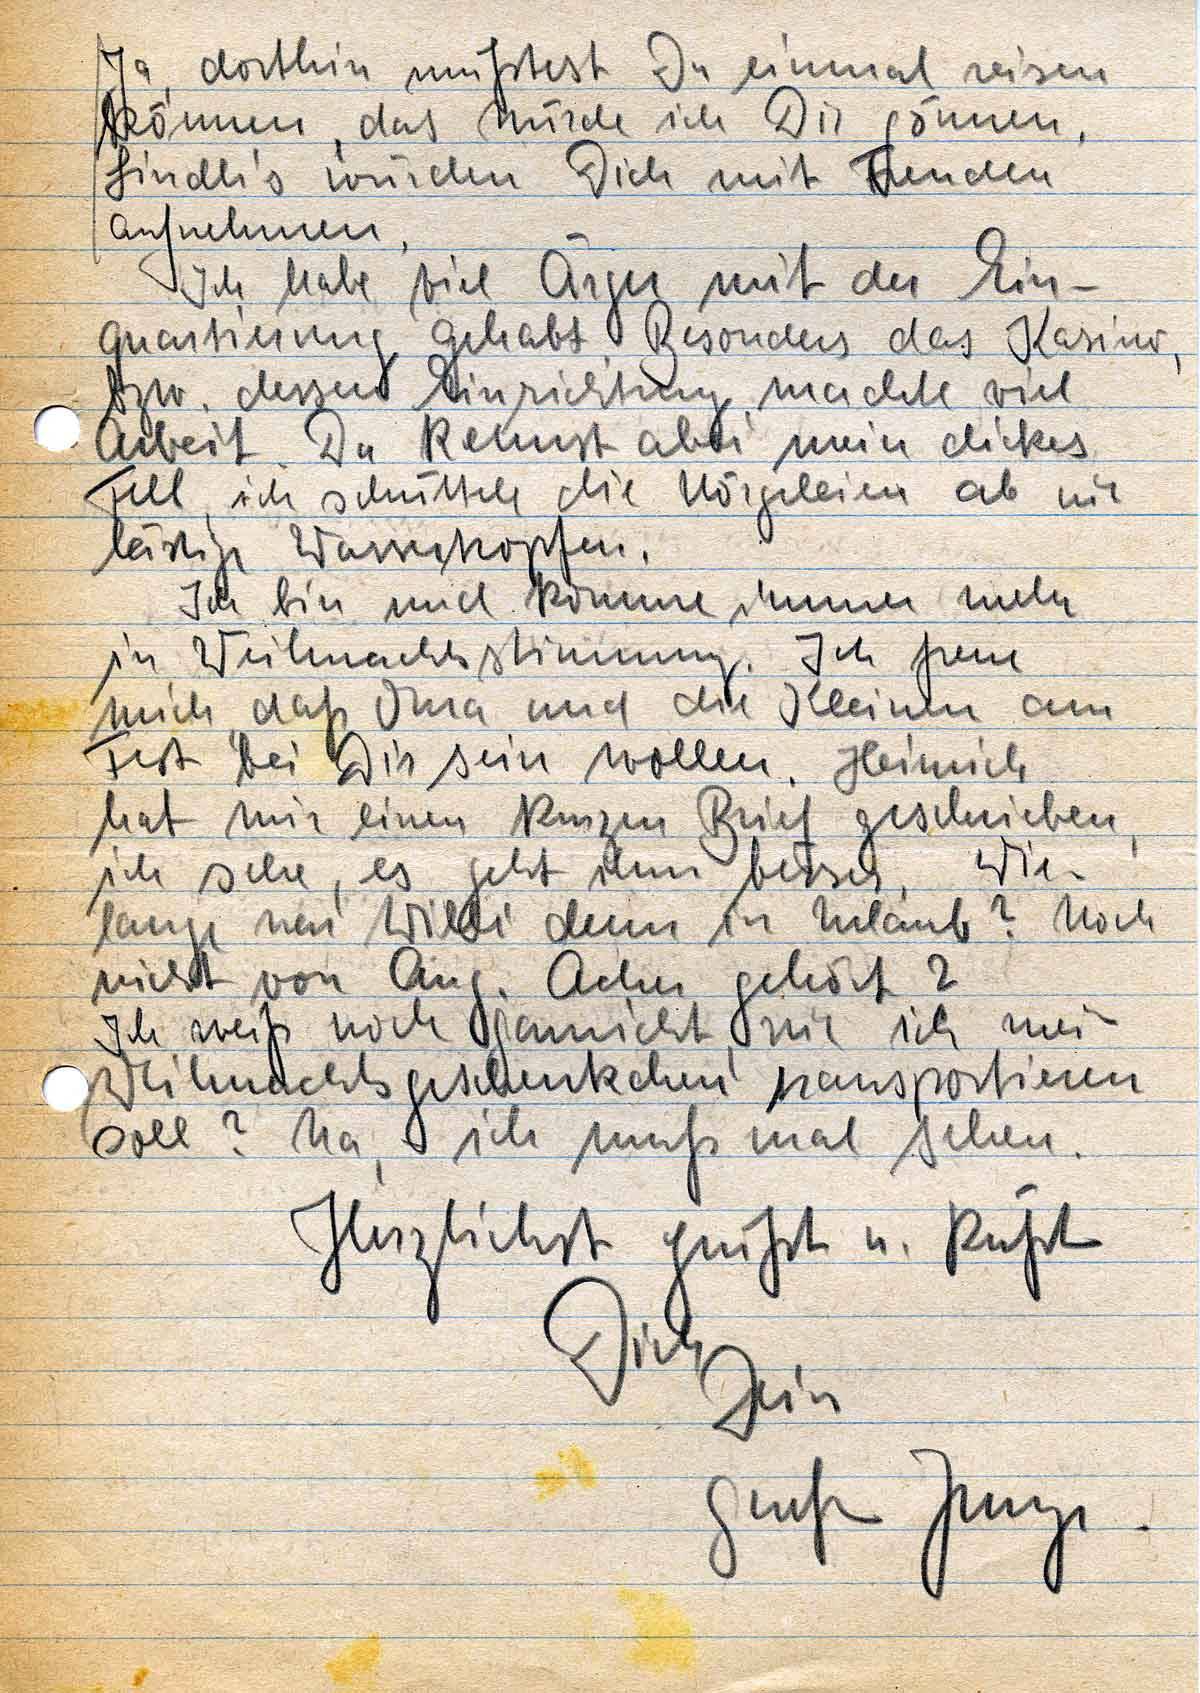 Ja, dorthin müßtest Du einmal reisen
können, das würde ich Dir gönnen.
Lindli's würden Dich mit Freuden
aufnehmen.
Ich habe viel Ärger mit der Ein-
quartierung gehabt. Besonders das Kasino,
bzw. dessen Einrichtung machte viel
Arbeit. Du kennst aber mein dickes
Fell, ich schüttele die Nörgeleien ab wie
lästige Wassertropfen.
Ich bin und komme immer mehr
in Weihnachtsstimmung. Ich freue
mich, daß Oma und die Kleinen am
Fest bei Dir sein wollen. Heinrich
hat mir einen kurzen Brief geschrieben,
ich sehe, es geht ihm besser. Wie-
lange war Willi denn in Urlaub? Noch
nicht von Aug. Acher gehört?
Ich weiß noch garnicht, wie ich mei
Weihnachtsgeschenkchen transportieren
soll? Na, ich muß mal sehen.
Herzlichst grüßt u. küßt
Dich
Dein
großer Junge.